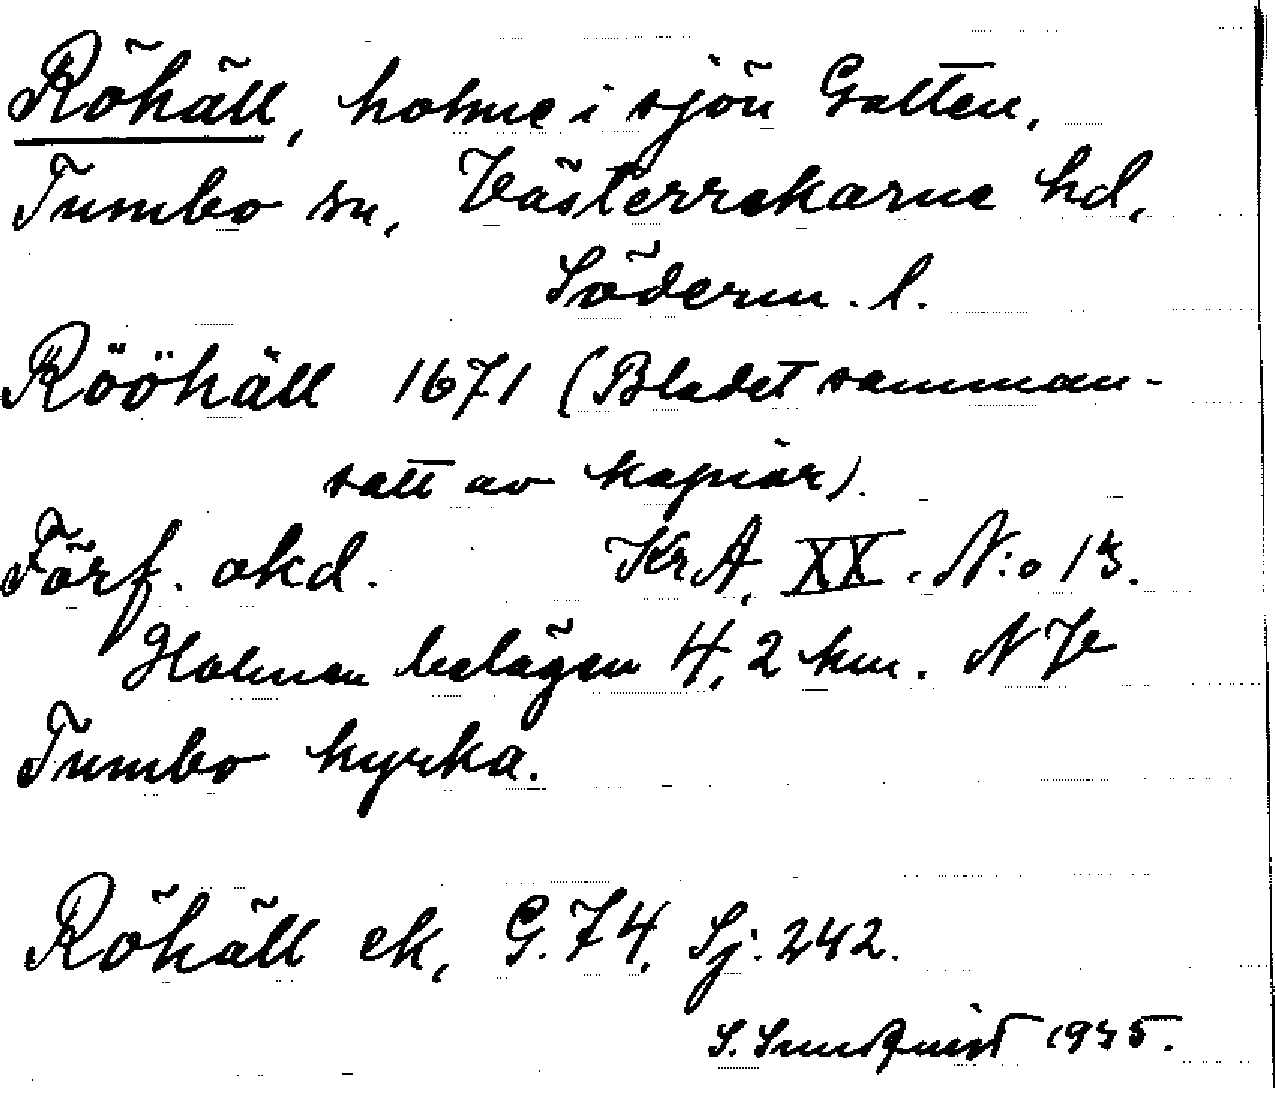 Röhäll, holme i sjön Galten,
Tumbo sn, Västerrekarne hd,
Söderm. l.
Rööhäll 1671 (Bladet samman-
satt av kopior).
Förf. okd. Kr.A, XX. N:o 13.
Holmen belägen 4,2 km. N
Tumbo kyrka.
Röhäll ek, G.74, Sj:242.
S. Sundquist 1935.